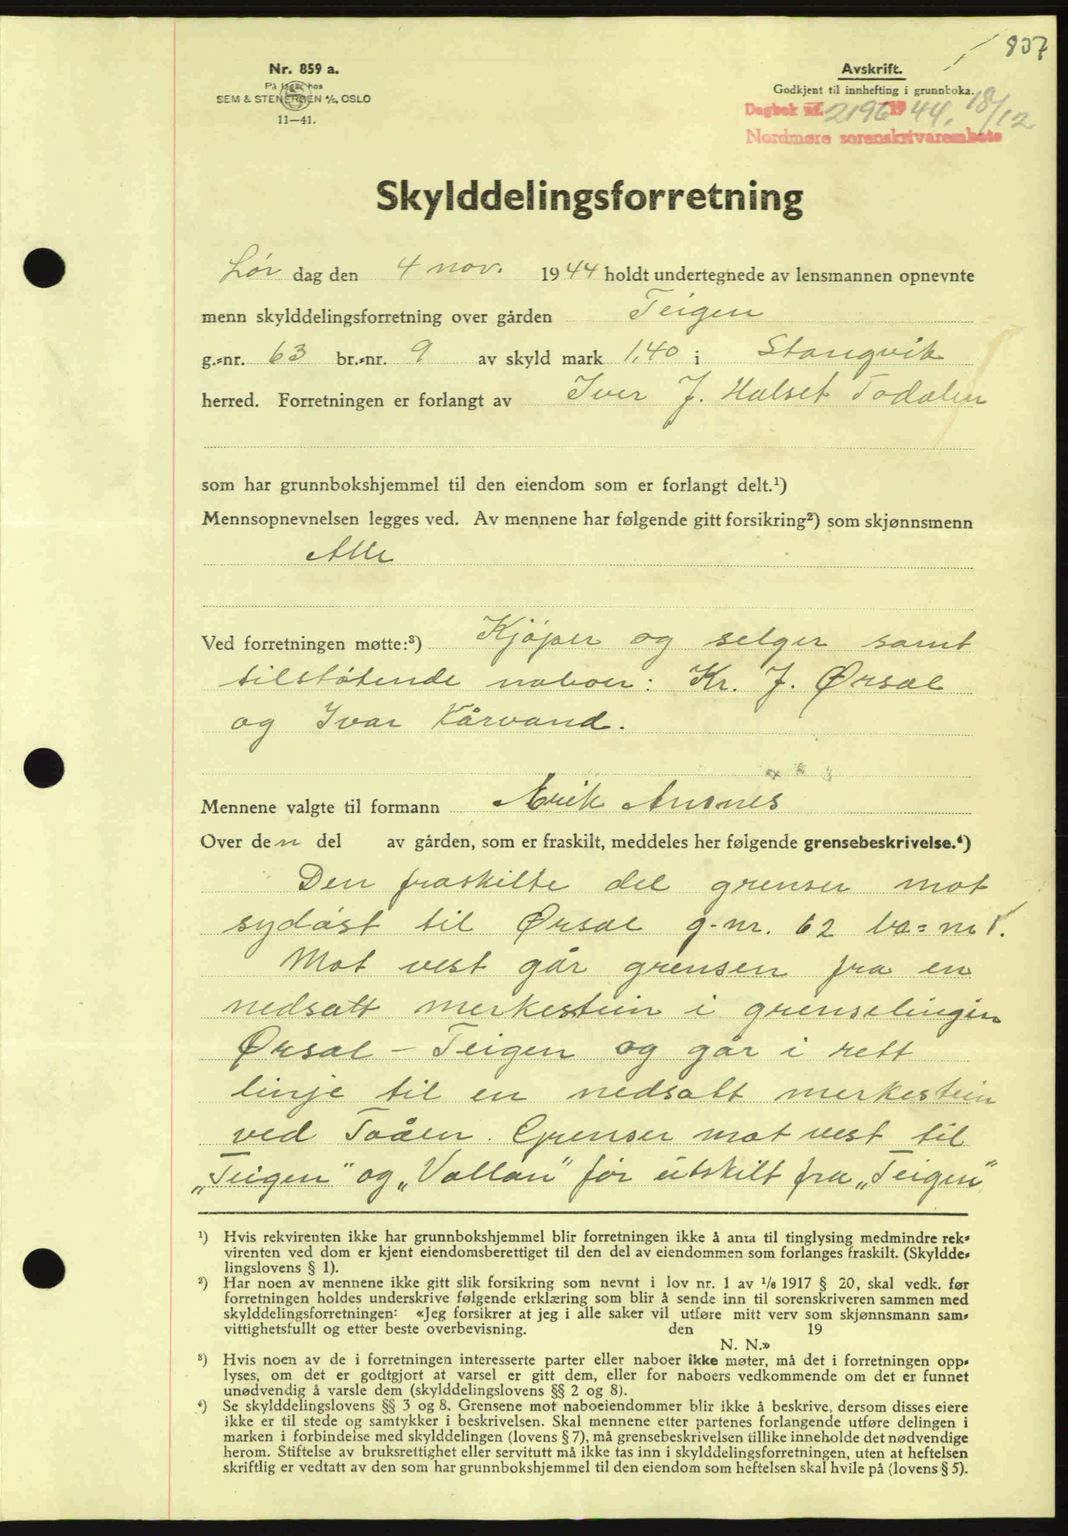 807
Nr. 859 a.
På lager hos
SEM & STENERSEN A/S, OSLO
11—41.
Avskrift.
Godkjent til innhefting i grunnboka.
Dagbok nr. 2196 19 44. 18/12
Nordmøre sorenskrivarembete
Skylddelingsforretning
Lør dag den 4 nov. 1944 holdt undertegnede av lensmannen opnevnte
menn skylddelingsforretning over gården Teigen
g.-nr. 63 br.-nr. 9 av skyld mark 1,40 i Stangvik
herred. Forretningen er forlangt av Iver J. Halset Todalen
som har grunnbokshjemmel til den eiendom som er forlangt delt.¹)
Mennsopnevnelsen legges ved. Av mennene har følgende gitt forsikring²) som skjønnsmenn
Alle
Ved forretningen møtte:³) Kjøper og selger samt
tilstøtende naboer: Kr. J. Ørsal
og Ivar Kårvand.
Mennene valgte til formann Erik Ansnes
Over den del av gården, som er fraskilt, meddeles her følgende grensebeskrivelse.⁴)
Den fraskilte del grenser mot
sydøst til Ørsal g-nr. 62 br=nr 1.
Mot vest går grensen fra en
nedsatt merkestein i grenselinjin
Ørsal – Teigen og går i rett
linje til en nedsatt merkestein
ved Toåen. Grenser mot vest til
„Teigen" og „Vollan" før utskilt fra „Teigen"
¹) Hvis rekvirenten ikke har grunnbokshjemmel blir forretningen ikke å anta til tinglysing medmindre rek-
virenten ved dom er kjent eiendomsberettiget til den del av eiendommen som forlanges fraskilt. (Skyldde-
lingslovens § 1).
²) Har noen av mennene ikke gitt slik forsikring som nevnt i lov nr. 1 av 1/6 1917 § 20, skal vedk. før
forretningen holdes underskrive følgende erklæring som blir å sende inn til sorenskriveren sammen med
skylddelingsforretningen: «Jeg forsikrer at jeg i alle saker vil utføre mitt verv som skjønnsmann sam-
vittighetsfullt og etter beste overbevisning. den 19
N. N.»
³) Hvis noen av de i forretningen interesserte parter eller naboer ikke møter, må det i forretningen opp-
lyses, om det er godtgjort at varsel er gitt dem, eller for naboers vedkommende om det er funnet
unødvendig å varsle dem (skylddelingslovens §§ 2 og 8).
⁴) Se skylddelingslovens §§ 3 og 8. Grensene mot naboeiendommer blir ikke å beskrive, dersom disses eiere
ikke er til stede og samtykker i beskrivelsen. Skal mennene etter partenes forlangende utføre delingen i
marken i forbindelse med skylddelingen (lovens § 7), må grensebeskrivelsen tillike inneholde det nødvendige
herom. Stiftelse av bruksrettighet eller servitutt må ikke tas inn i skylddelingsforretningen, uten at heftelsen
skriftlig er vedtatt av den som har grunnbokshjemmel til den eiendom som heftelsen skal hvile på (lovens § 5).